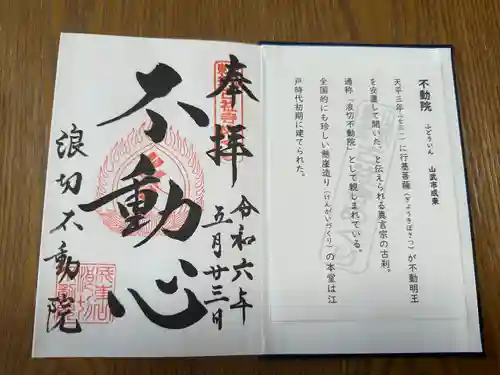 不動院 ふどういん 山武市成東
天平三年（七三一）に行基菩薩（ぎょうきぼさつ）が不動明王
を安置して開いた、と伝えられる真言宗の古刹。
通称「浪切不動院」として親しまれている。
全国的にも珍しい懸崖造り（けんがいづくり）の本堂は江
戸時代初期に建てられた。
奉拝
令和六年
五月廿三日
不動心
浪切不動院